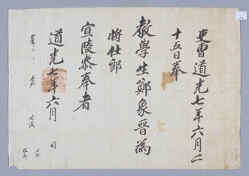 吏曹道光七年六月二
十五日奉
教學生鄭象晉爲
將仕郎
宣陵參奉者
道光七年六月 日